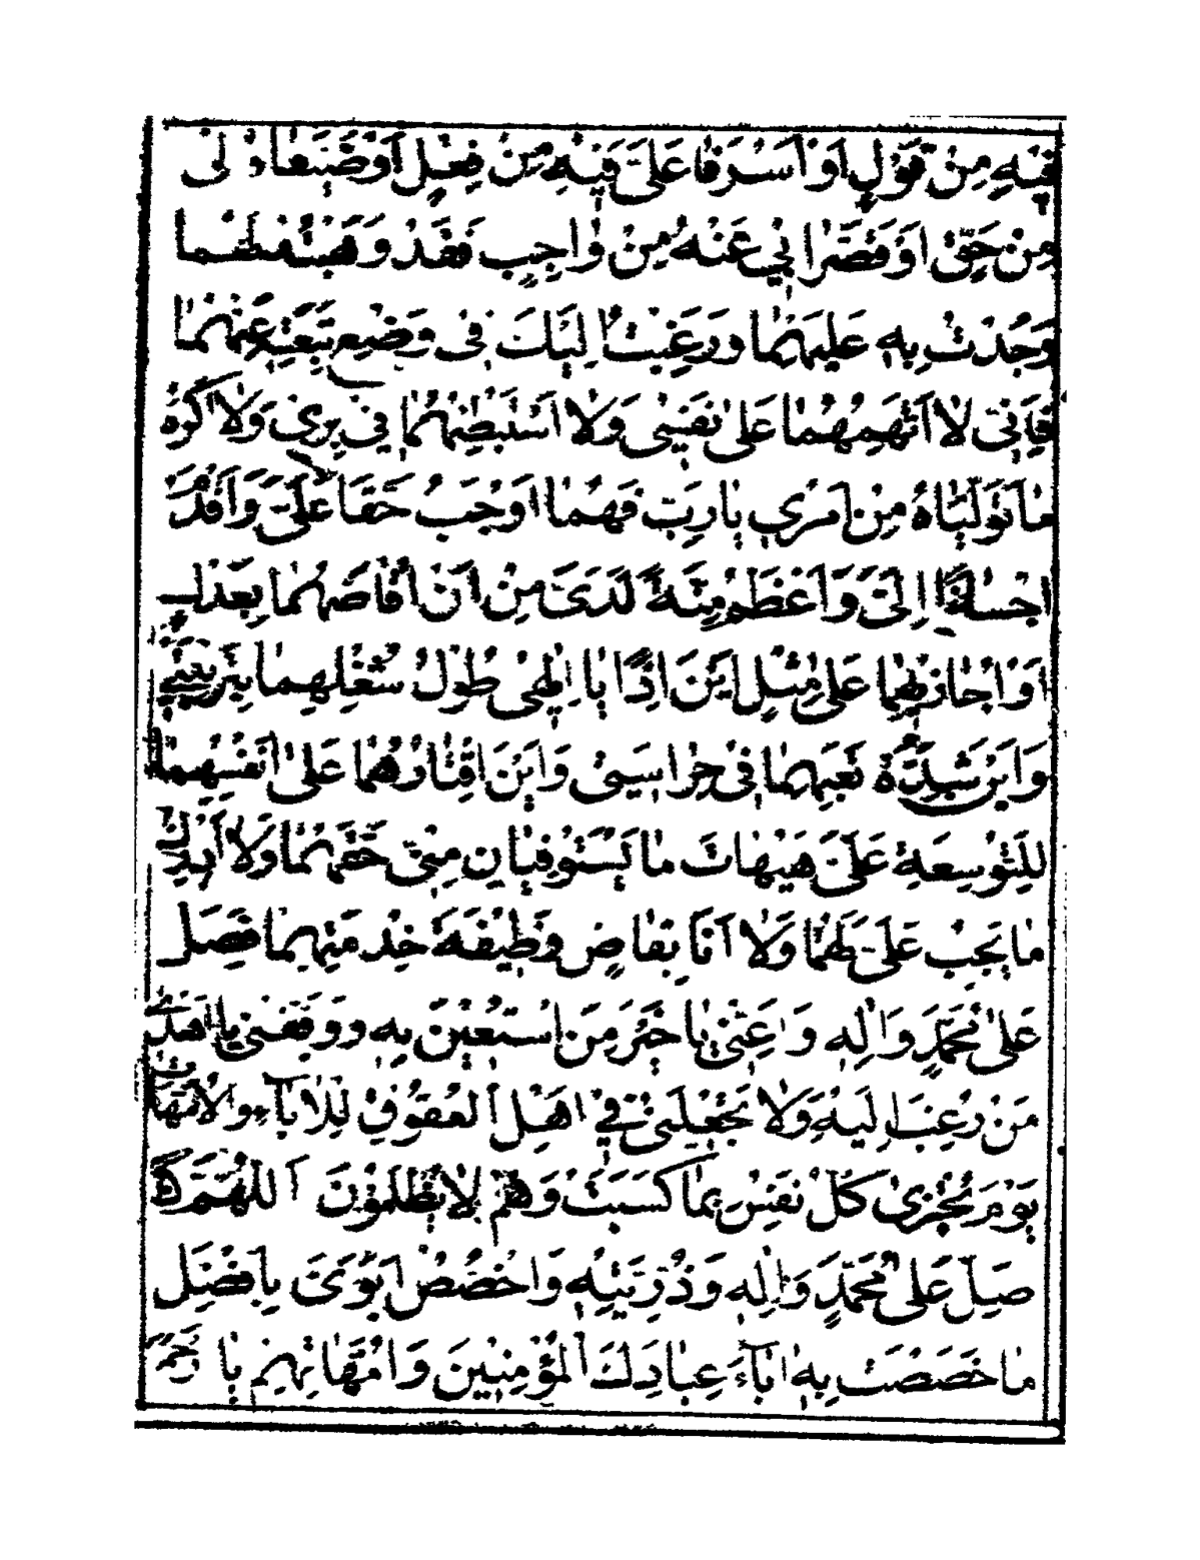 فِيهِ مِنْ قَوْلٍ اَوْ اَسْرَفَا عَلَىَّ فِيْهِ مِنْ فِعْلٍ اَوْ ضَيَّعَاهُ لى
مِنْ حَقٍّ اَوْ قَصَّرَا بِي عَنْهُ مِنْ وَاجِبٍ فَقَدْ وَهَبْتُهُ لَهُما
وَجُدْتُ بِهِ عَلَيْهِمَا وَرَغِبْتُ اِلَيْكَ فِى وَضْعِ تَبِعَتِهِ عَنْهُمَا
فَاِنّى لَا اَتَّهِمُهُمَا عَلى نَفْسِى وَلَا اَسْتَبْطِئُهُمَا فِي بِرّى وَلَا اَكْرَهُ
مَا تَوَلَّيَاهُ مِنْ اَمْرِي يَا رَبِّ فَهُمَا اَوْجَبُ حَقًّا عَلَىَّ وَاَقْدَمُ
اِحْسَانًا اِلَىَّ وَاَعْظَمُ مِنَّةً لَدَىَّ مِنْ اَنْ اُقَاصَّهُمَا بِعَدْلٍ
اَوْ اُجَازِيَهُمَا عَلى مِثْلٍ اَيْنَ اِذًا يَا اِلٰهِى طُوْلُ شُغْلِهِمَا بِتَرْبِيَتِي
وَاَيْنَ شِدَّةُ تَعَبِهِمَا فِى حِرَاسَتِى وَاَيْنَ اِقْتَارُهُمَا عَلى اَنْفُسِهِمَا
لِلتَّوْسِعَةِ عَلَىَّ هَيْهَاتَ مَا يَسْتَوْفِيَانِ مِنّى حَقَّهُمَا وَلَا اُدْرِكُ
مَا يَجِبُ عَلَىَّ لَهُمَا وَلَا اَنَا بِقَاضٍ وَظِيْفَةَ خِدْمَتِهِمَا فَصَلِّ
عَلى مُحَمَّدٍ وَاٰلِهِ وَاَعِنّى يَا خَيْرَ مَنِ اسْتُعِيْنَ بِهِ وَوَفِّقْنِى يَا اَهْدٰى
مَنْ رُغِبَ اِلَيْهِ وَلَا تَجْعَلْنِى فِي اَهْلِ الْعُقُوقِ لِلْاٰبَاءِ وَالْاُمَّهَاتِ
يَوْمَ تُجْزٰى كُلُّ نَفْسٍ بِمَا كَسَبَتْ وَهُمْ لَا يُظْلَمُوْنَ اَللّٰهُمَّ
صَلِّ عَلى مُحَمَّدٍ وَاٰلِهِ وَذُرِّيَّتِهِ وَاخْصُصْ اَبَوَىَّ بِاَفْضَلِ
مَا خَصَصْتَ بِهِ اٰبَاءَ عِبَادِكَ الْمُؤْمِنِيْنَ وَاُمَّهَاتِهِمْ يَا